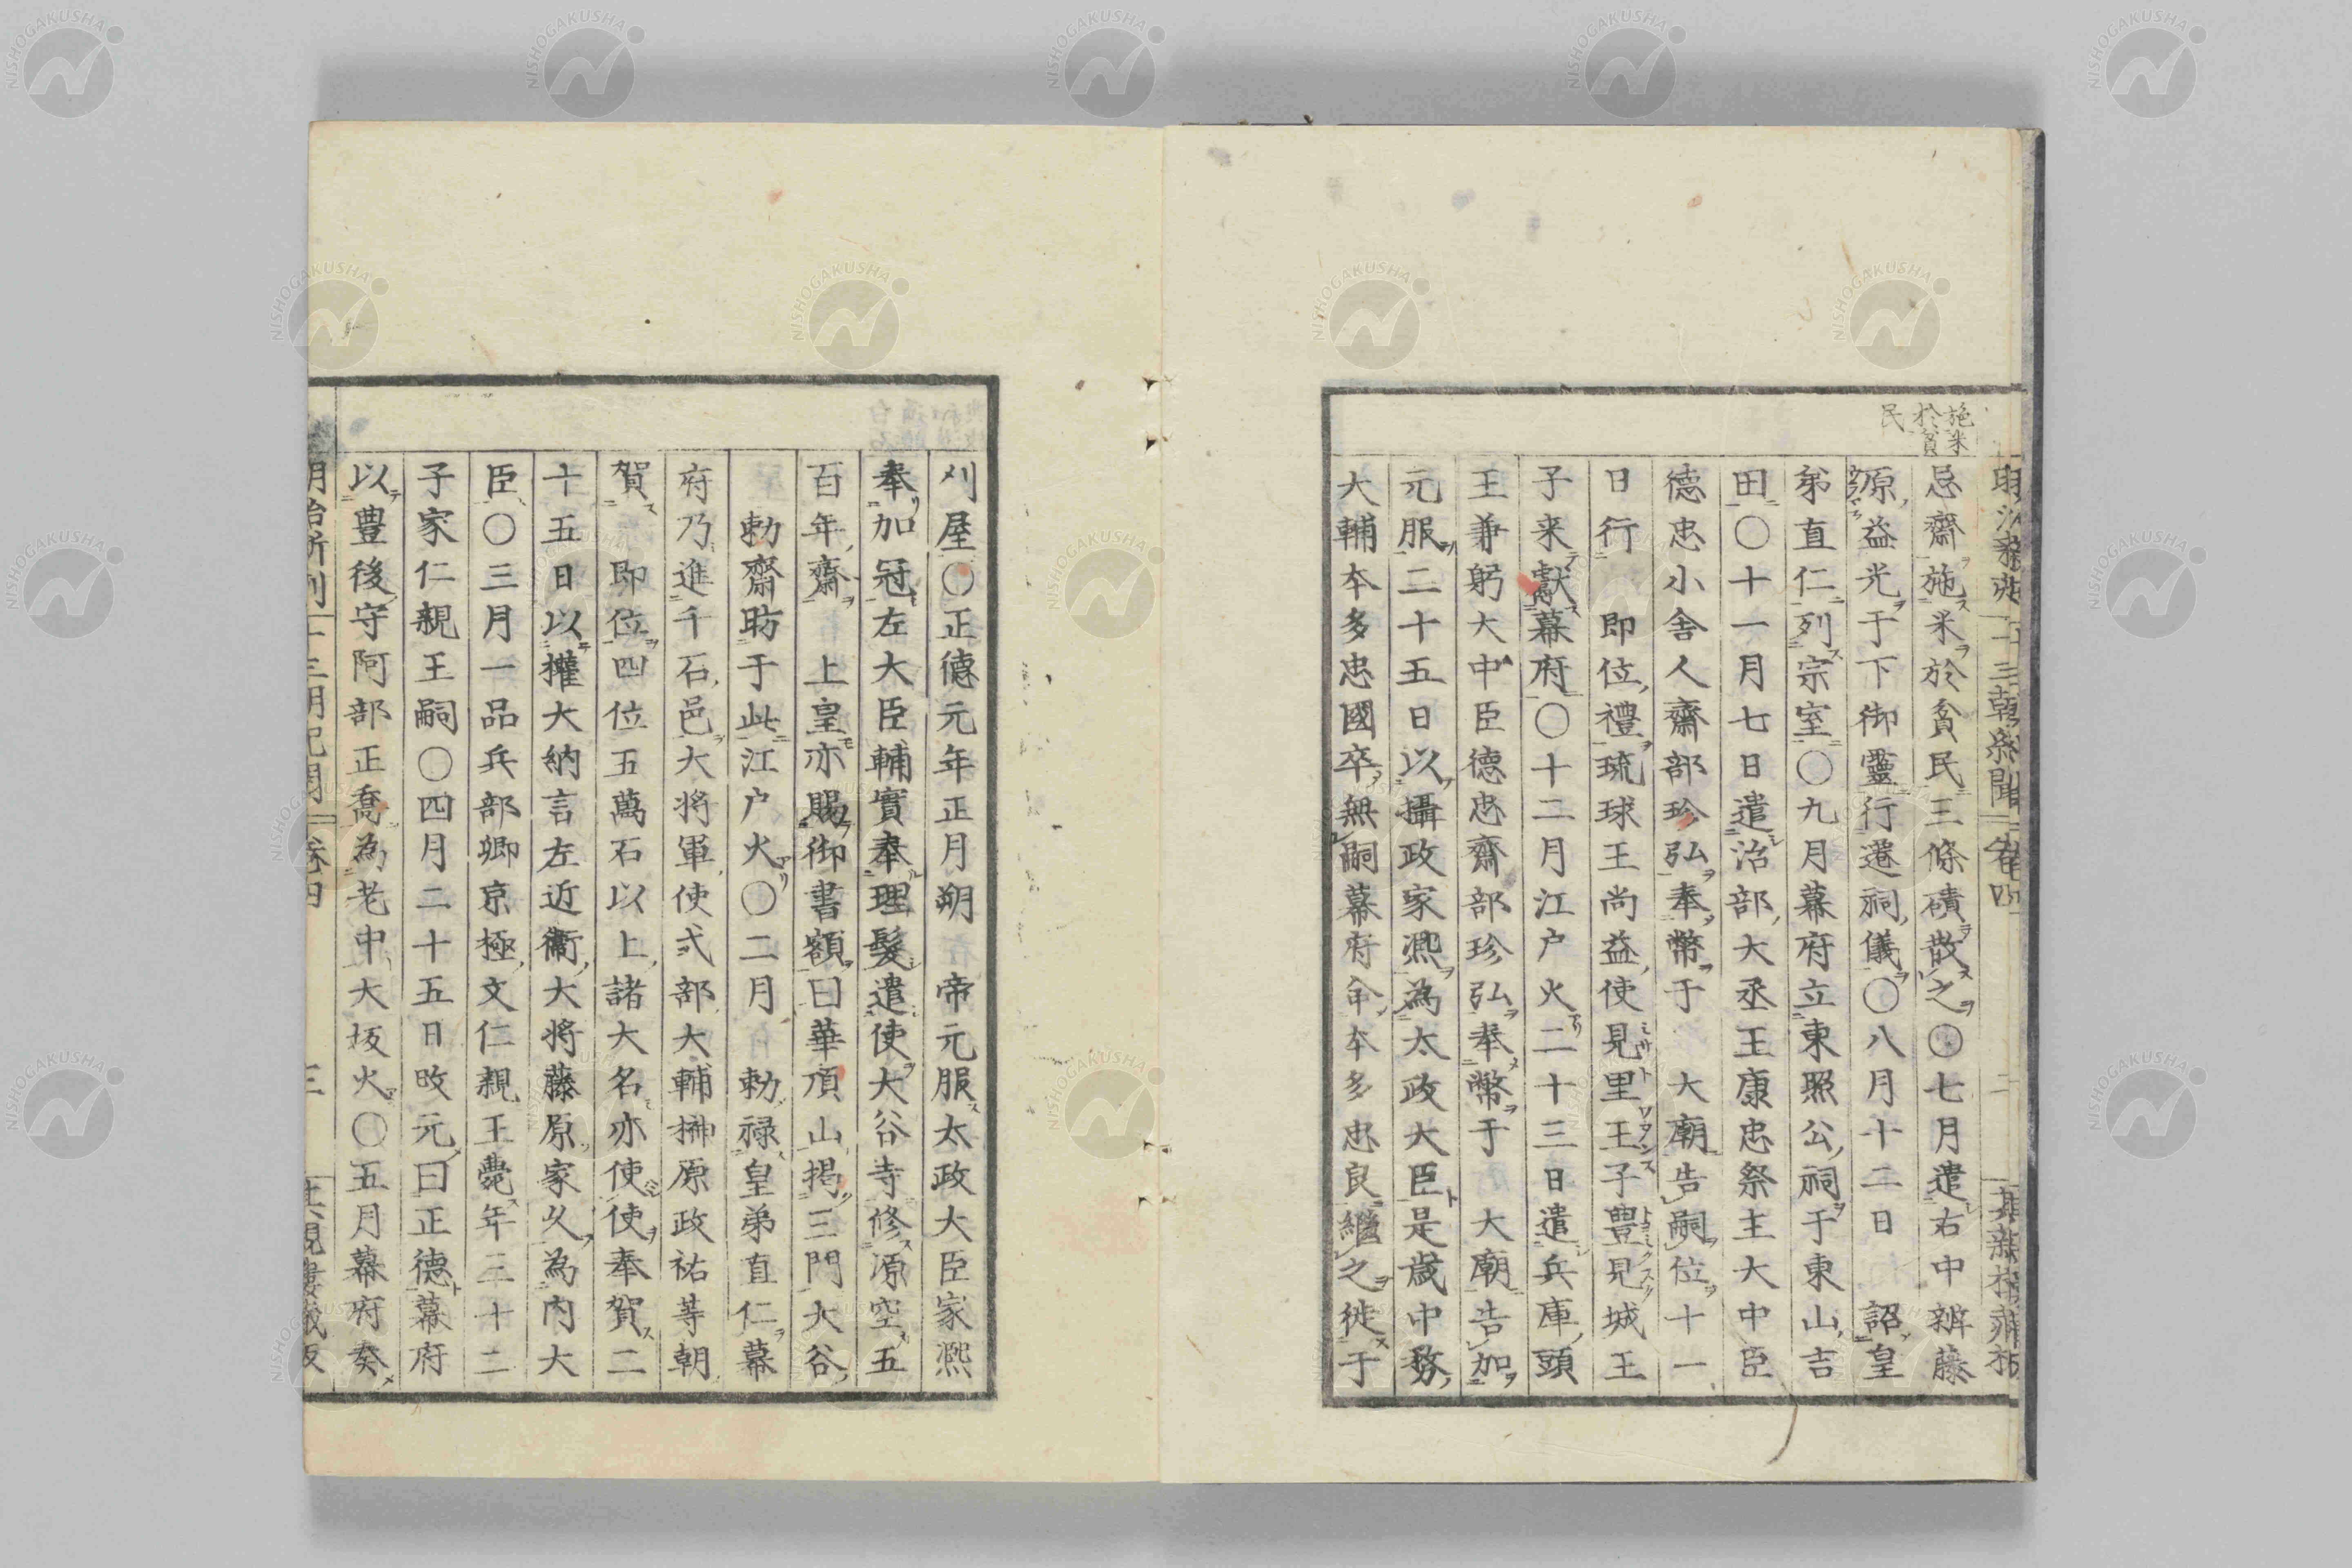 施米
於貧
民
忌齋施米於貧民三條磧散之〇七月遣右中辨藤
原益光于下御靈行遷祠儀〇八月十二日　詔皇
弟直仁列宗室〇九月幕府立東照公祠于東山吉
田〇十一月七日遣治部大丞王康忠祭主大中臣
德忠小舍人齋部珍弘奉幣于　大廟告嗣位十一
日行　即位禮琉球王尚益使見里王子豊見城王
子来獻幕府〇十二月江户火二十三日遣兵庫頭
王兼躬大中臣德忠齋部珍弘奉幣于　大廟告加
元服二十五日以攝政家凞為太政大臣是歲中務
大輔本多忠國卒無嗣幕府命本多忠良繼之徙于
刈屋〇正德元年正月朔　帝元服太政大臣家凞
奉加冠左大臣輔實奉理髮遣使大谷寺修源空五
百年齋　上皇亦賜御書額曰華頂山揭三門大谷
勅齋昉于此江户火〇二月　勅禄皇弟直仁幕
府乃進千石邑大将軍使式部大輔榊原政祐等朝
賀　即位四位五萬石以上諸大名亦使使奉賀二
十五日以權大納言左近衛大将藤原家久為内大
臣〇三月一品兵部卿京極文仁親王薨年三十二
子家仁親王嗣〇四月二十五日改元曰正德幕府
以豊後守阿部正喬為老中大坂火〇五月幕府奏
明治新刊　十三朝紀聞　卷四　三